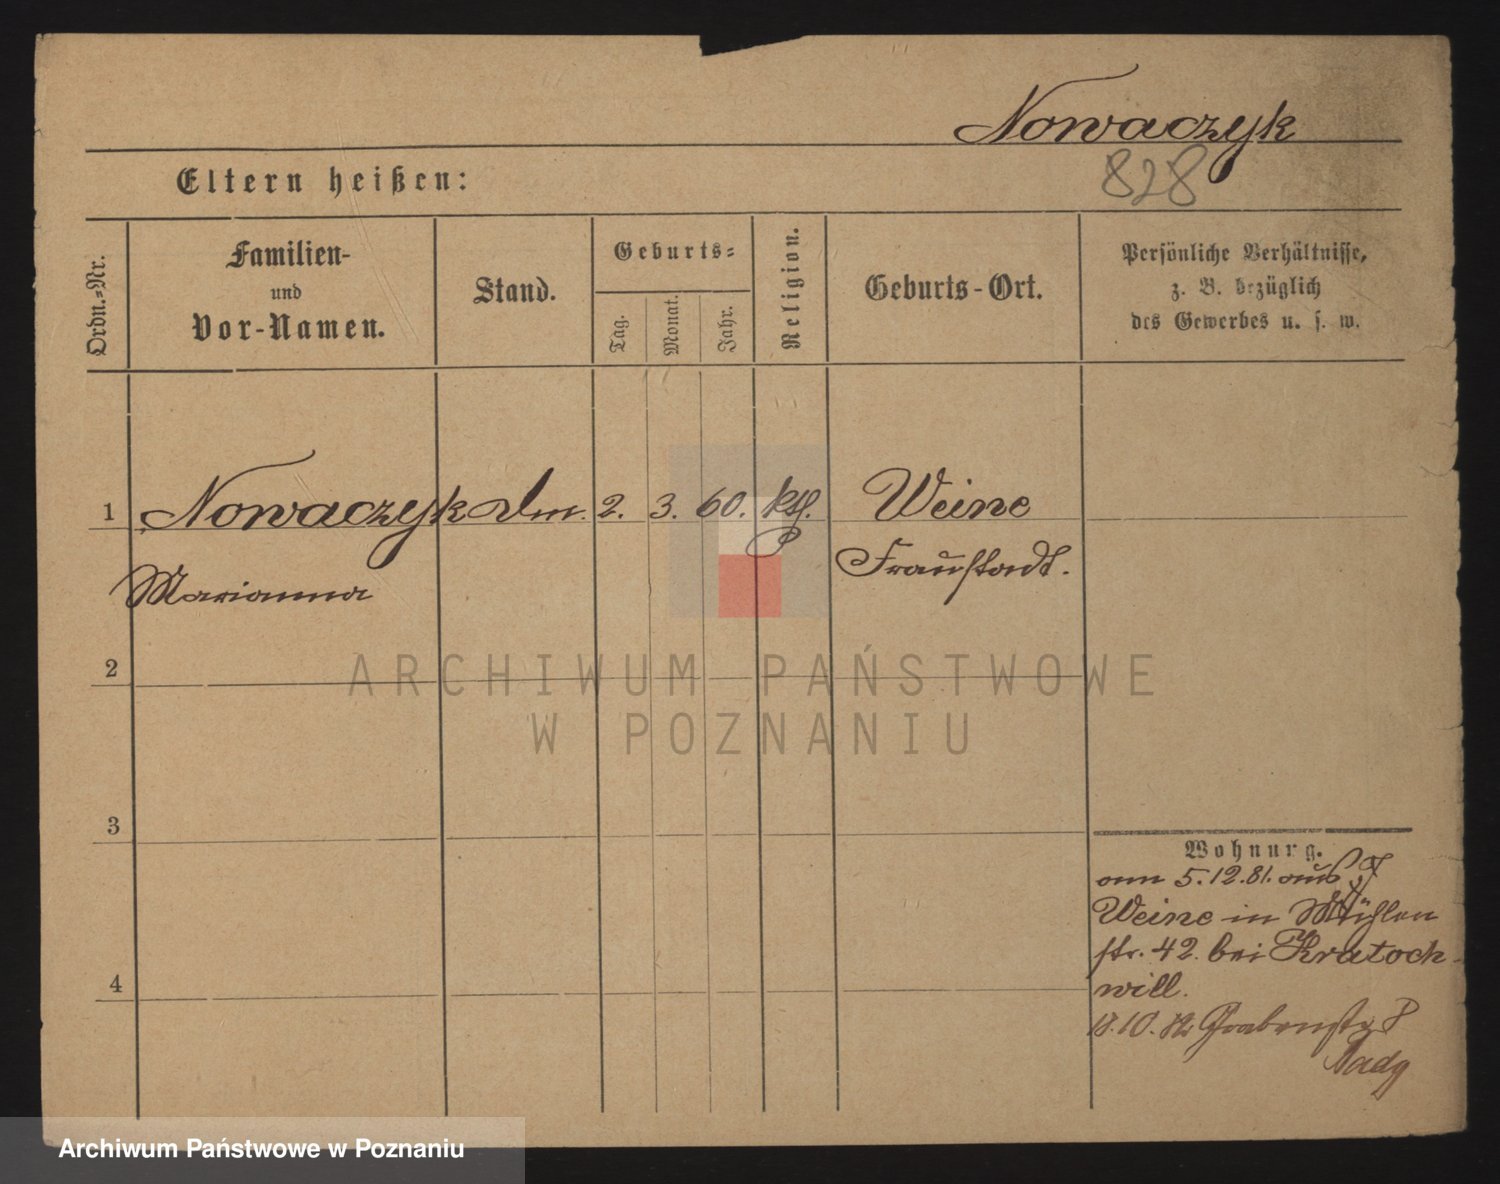 Nowaczyk
828
Eltern heißen:
Ordn.-Nr.
Familien-
und
Vor-Namen.
Stand.
Geburts-
Tag.
Monat.
Jahr.
Religion.
Geburts-Ort.
Persönliche Verhältnisse,
z. B. bezüglich
des Gewerbes u. s. w.
1 Nowaczyk 2. 3. 60. kth. Weine
Fraustadt.
Marianna
2
ARCHIWUM PAŃSTWOWE
W POZNANIU
3
Wohnung.
am 5.12.81. aus
Weine in Mühlen
str. 42. bei Kratoch-
will.
18.10. 82 Grabenstr
4
Archiwum Państwowe w Poznaniu